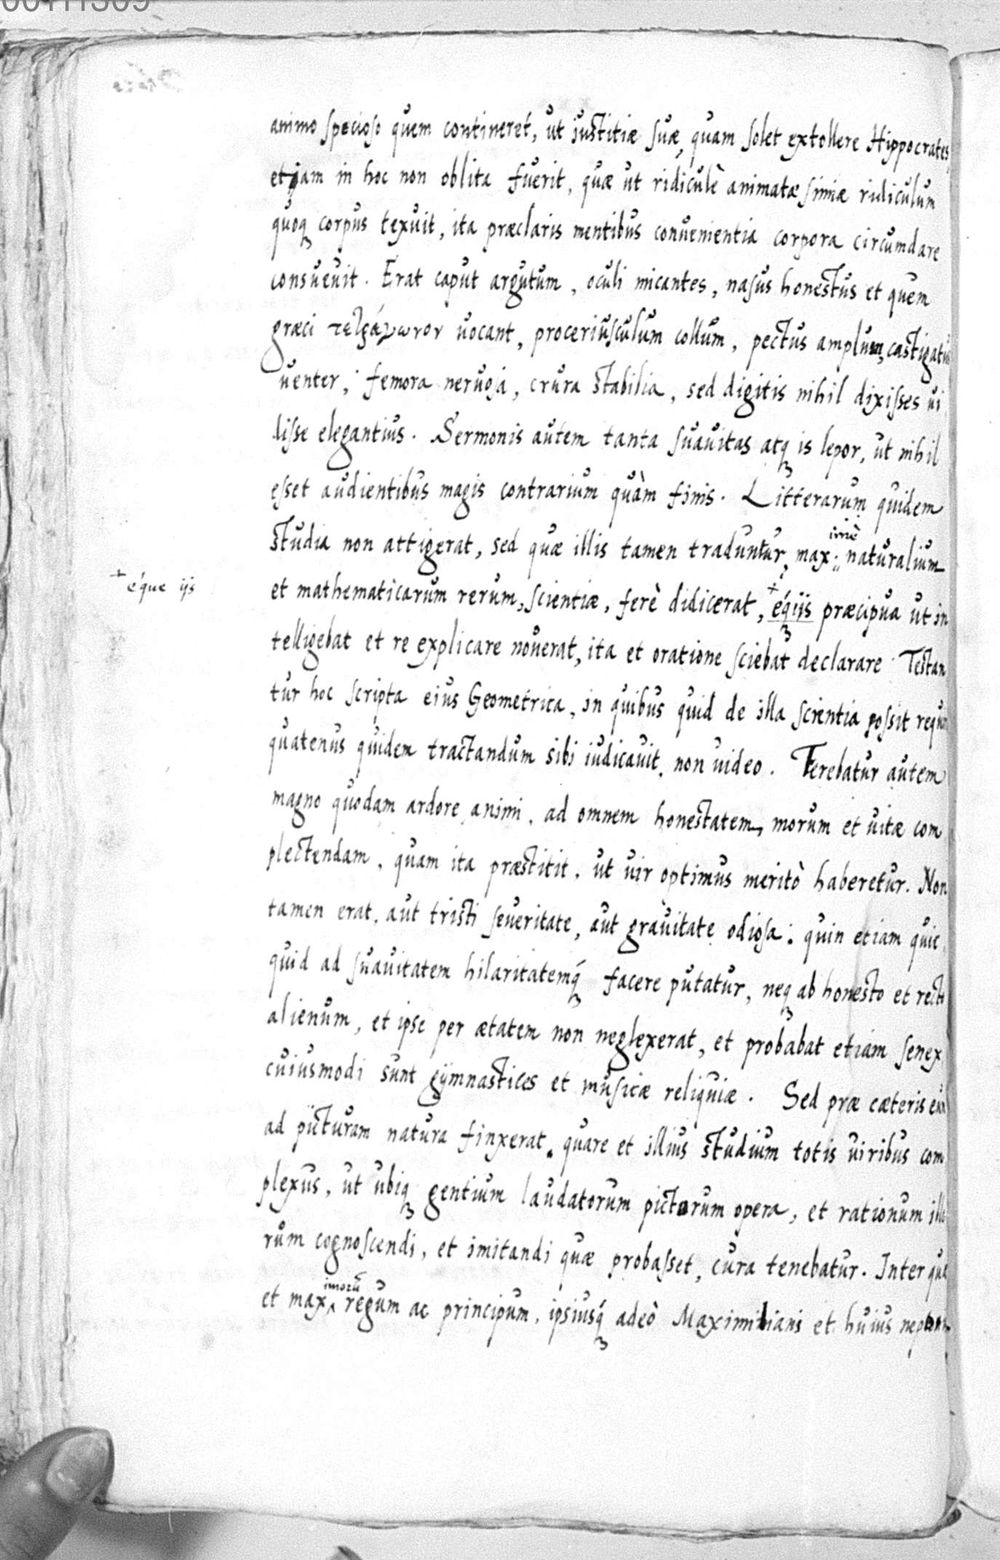 animo specioso quem contineret, ut iustitiæ suæ, quam solet extollere Hippocrates,
etiam in hoc non oblita fuerit, quæ ut ridiculè animatæ simiæ ridiculum
quoq corpus texuit, ita præclaris mentibus conuenientia corpora circumdare
consueuit. Erat caput argutum, oculi micantes, nasus honestus et quem
græci τετράγωνον uocant, proceriusculum collum, pectus amplum, castigatus
uenter, femora neruosa, crura stabilia, sed digitis nihil dixisses ui
disse elegantius. Sermonis autem tanta suauitas atq is lepor, ut nihil
esset audientibus magis contrarium quàm finis. Litterarum quidem
studia non attigerat, sed quæ illis tamen traduntur, maximè naturalium
+ éque ijs
et mathematicarum rerum, scientiæ, ferè didicerat, + éqijs præcipua ut in
telligebat et re explicare nouerat, ita et oratione sciebat declarare. Testan
tur hoc scripta eius Geometrica, in quibus quid de illa scientia possit requiri
quatenus quidem tractandum sibi iudicauit, non uideo. Ferebatur autem
magno quodam ardore animi, ad omnem honestatem, morum et uitæ com
plectendam, quam ita præstitit, ut uir optimus meritò haberetur. Non
tamen erat, aut tristi seueritate, aut grauitate odiosa: quin etiam quic
quid ad suauitatem hilaritatemq́ facere putatur, neq ab honesto et recto
alienum, et ipse per ætatem non neglexerat, et probabat etiam senex
cuiusmodi sunt gymnastices et musicæ reliquiæ. Sed præ cæteris eum
ad picturam natura finxerat, quare et illius studium totis uiribus com
plexus, ut ubiq gentium laudatorum pictorum opera, et rationum illo
rum cognoscendi, et imitandi quæ probasset, cura tenebatur. Inter quæ
et maximorū regum ac principum, ipsiusq́ adeò Maximiliani et huius nepotum